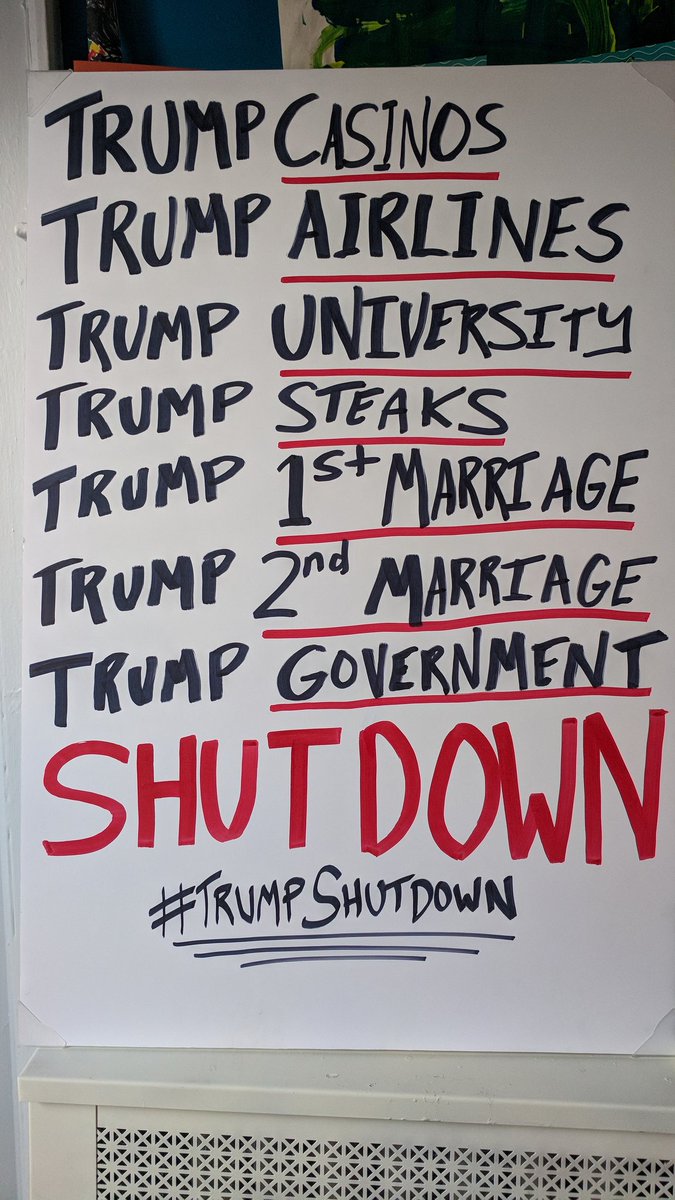 TRUMP CASINOS
TRUMP AIRLINES
TRUMP UNIVERSITY
TRUMP STEAKS
TRUMP 1st MARRIAGE
TRUMP 2nd MARRIAGE
TRUMP GOVERNMENT
SHUTDOWN
#TRUMPSHUTDOWN